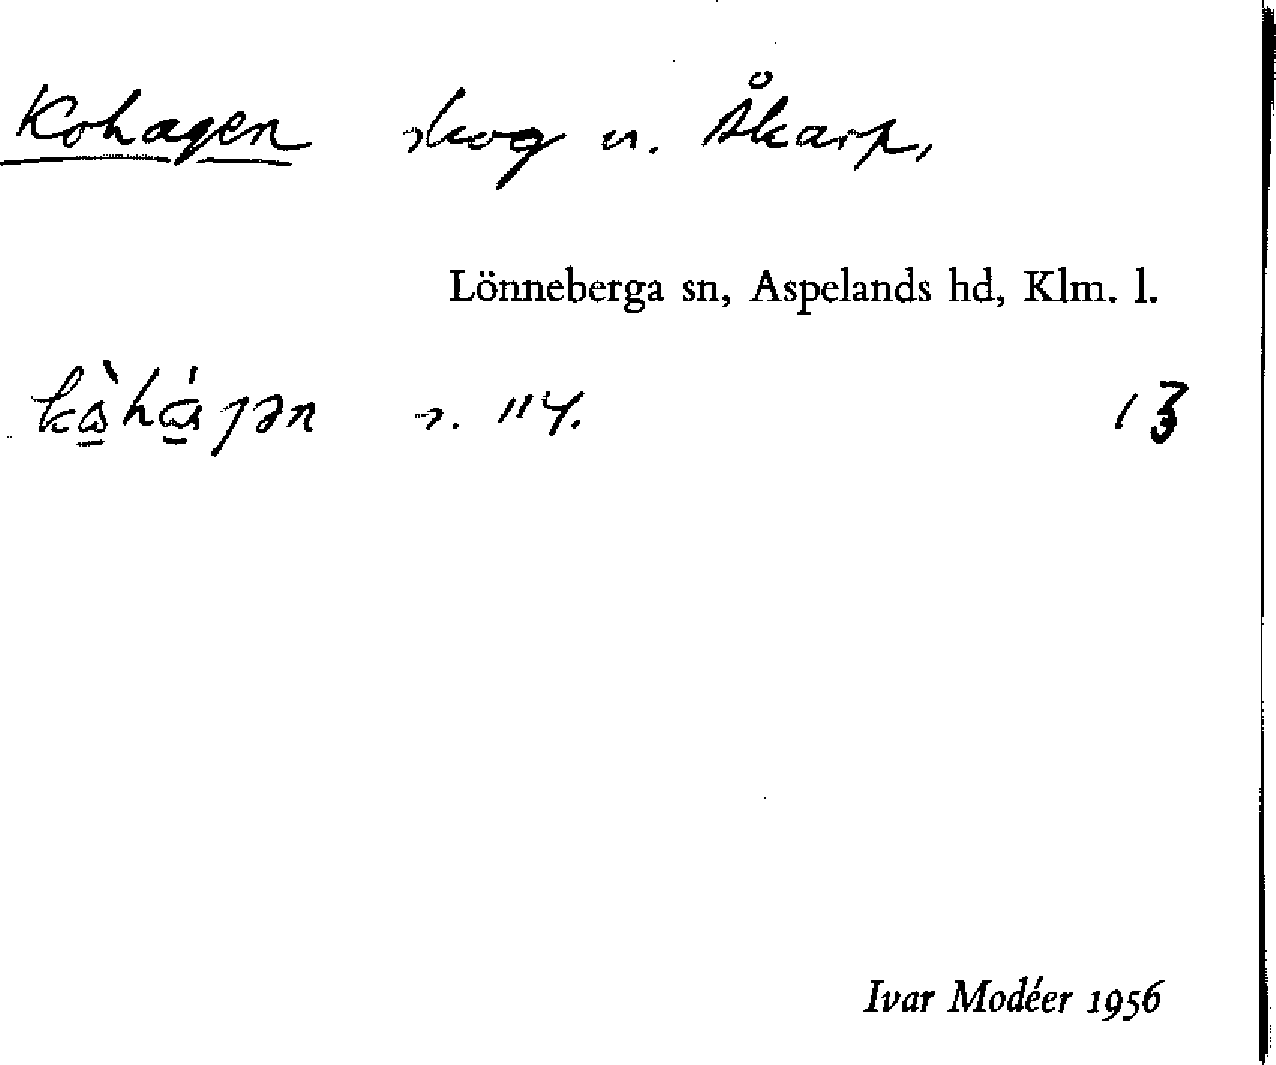 Kohagen skog u. Åkarp,
Lönneberga sn, Aspelands hd, Klm. l.
s. 114. 13
Ivar Modéer 1956